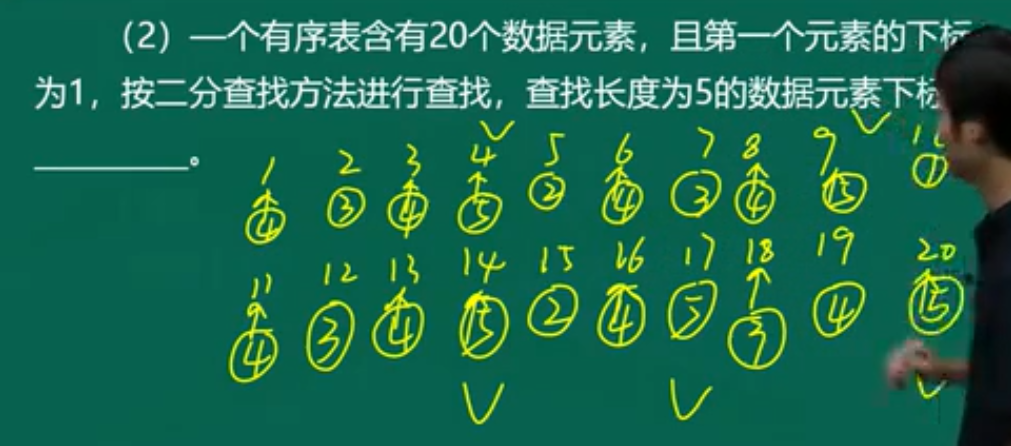 (2)一个有序表含有20个数据元素，且第一个元素的下标
为1，按二分查找方法进行查找，查找长度为5的数据元素下标
________。
1 2 3 4 5 6 7 8 9
④ ③ ④ ⑤ ② ④ ③ ④ ⑤ ①
11 12 13 14 15 16 17 18 19 20
④ ③ ④ ⑤ ② ④ ⑤ ③ ④ ⑤